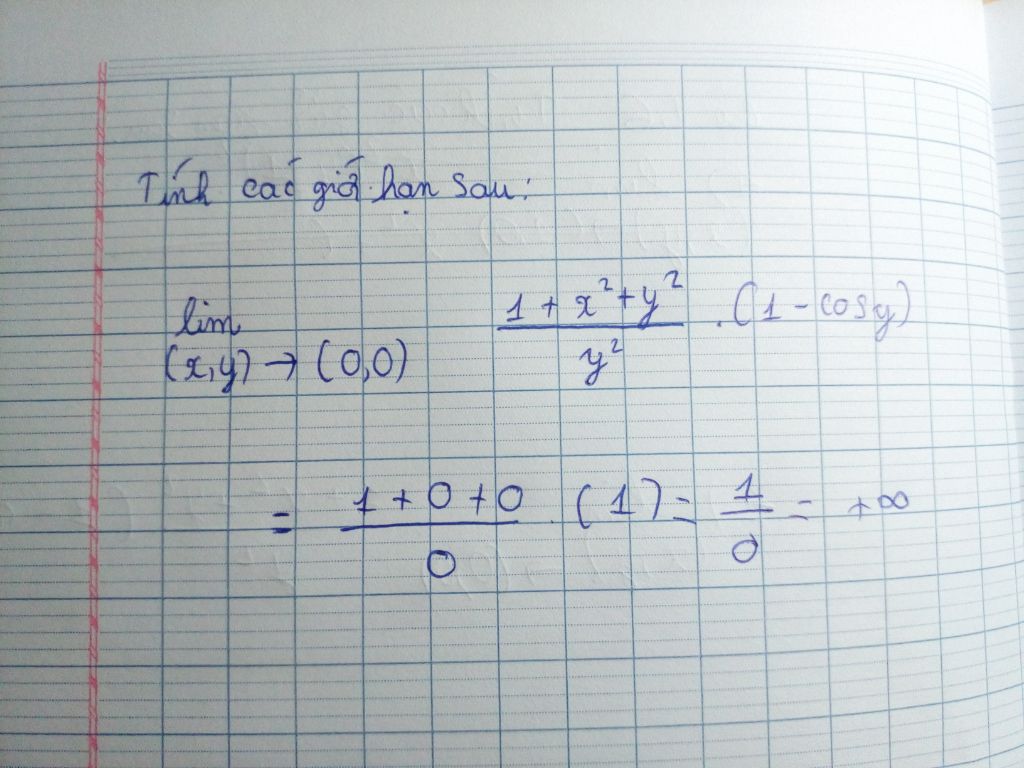 Tính các giới hạn sau:
lim (x,y) → (0,0) (1 + x² + y²)/y² . (1 - cosy)
= (1 + 0 + 0)/0 . (1) = 1/0 = +∞